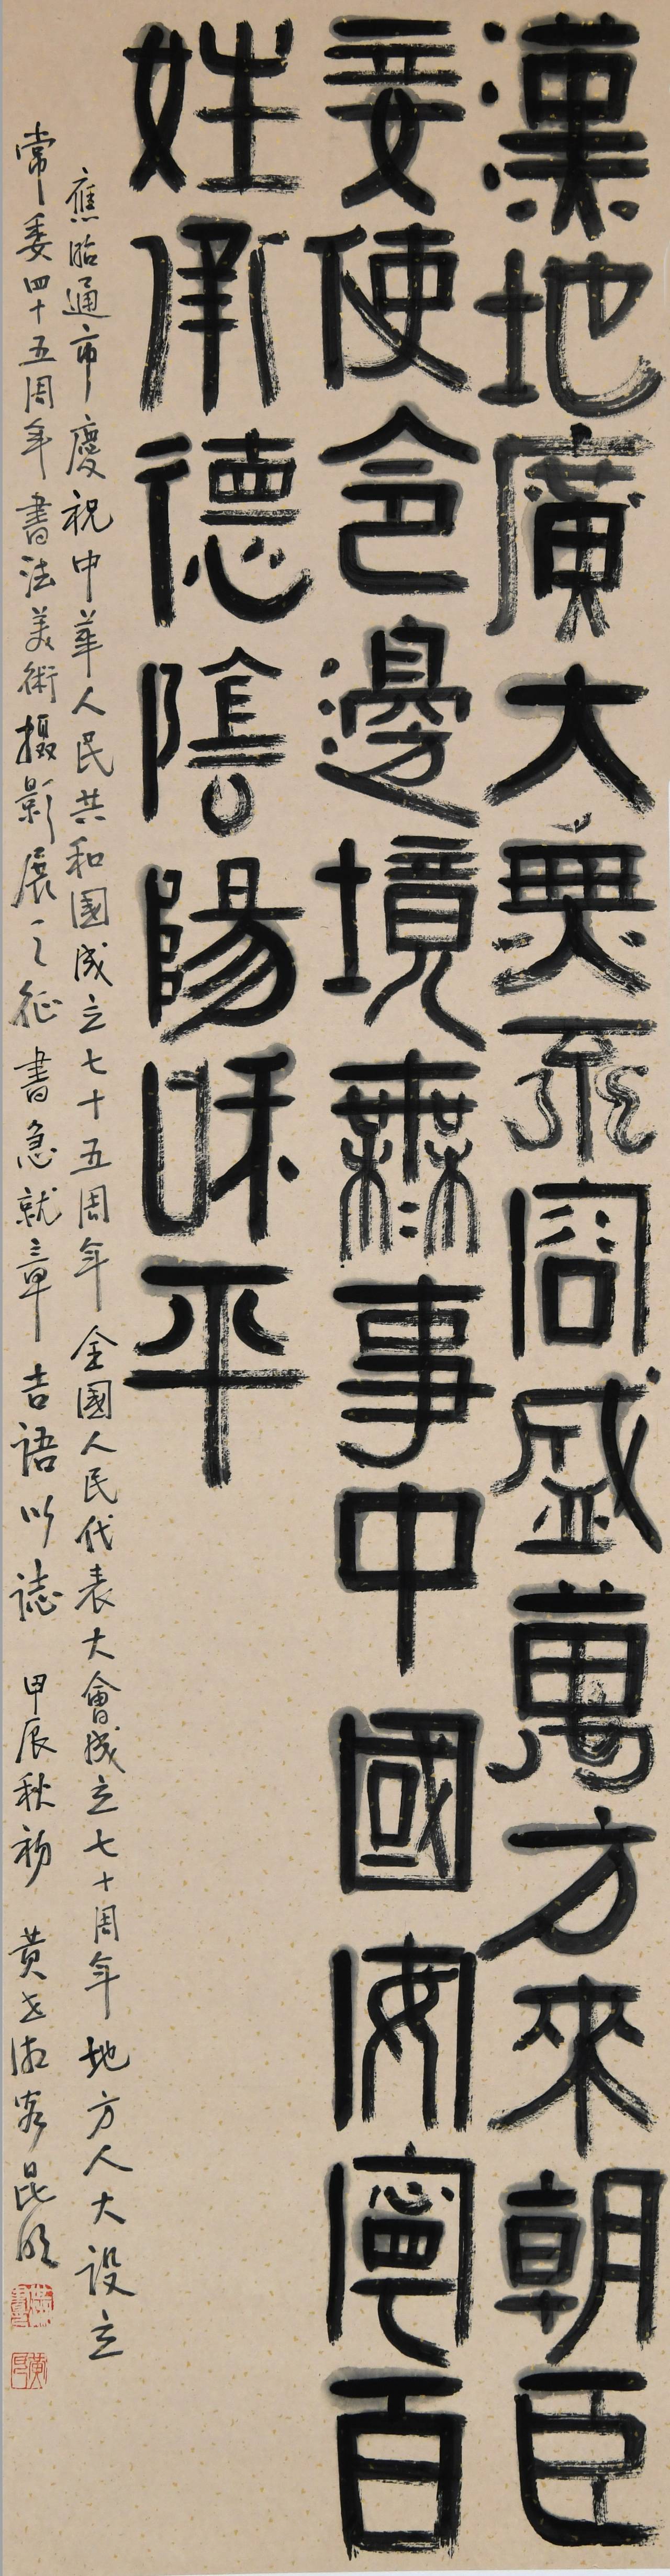 漢地廣大無不容盛萬方來朝臣
妾使令邊境無事中國安寧百
姓承德陰陽和平
應昭通市慶祝中華人民共和國成立七十五周年全國人民代表大會成立七十周年地方人大設立
常委四十五周年書法美術摄影展之征書急就章吉語以誌 甲辰秋初 黃 客昆明